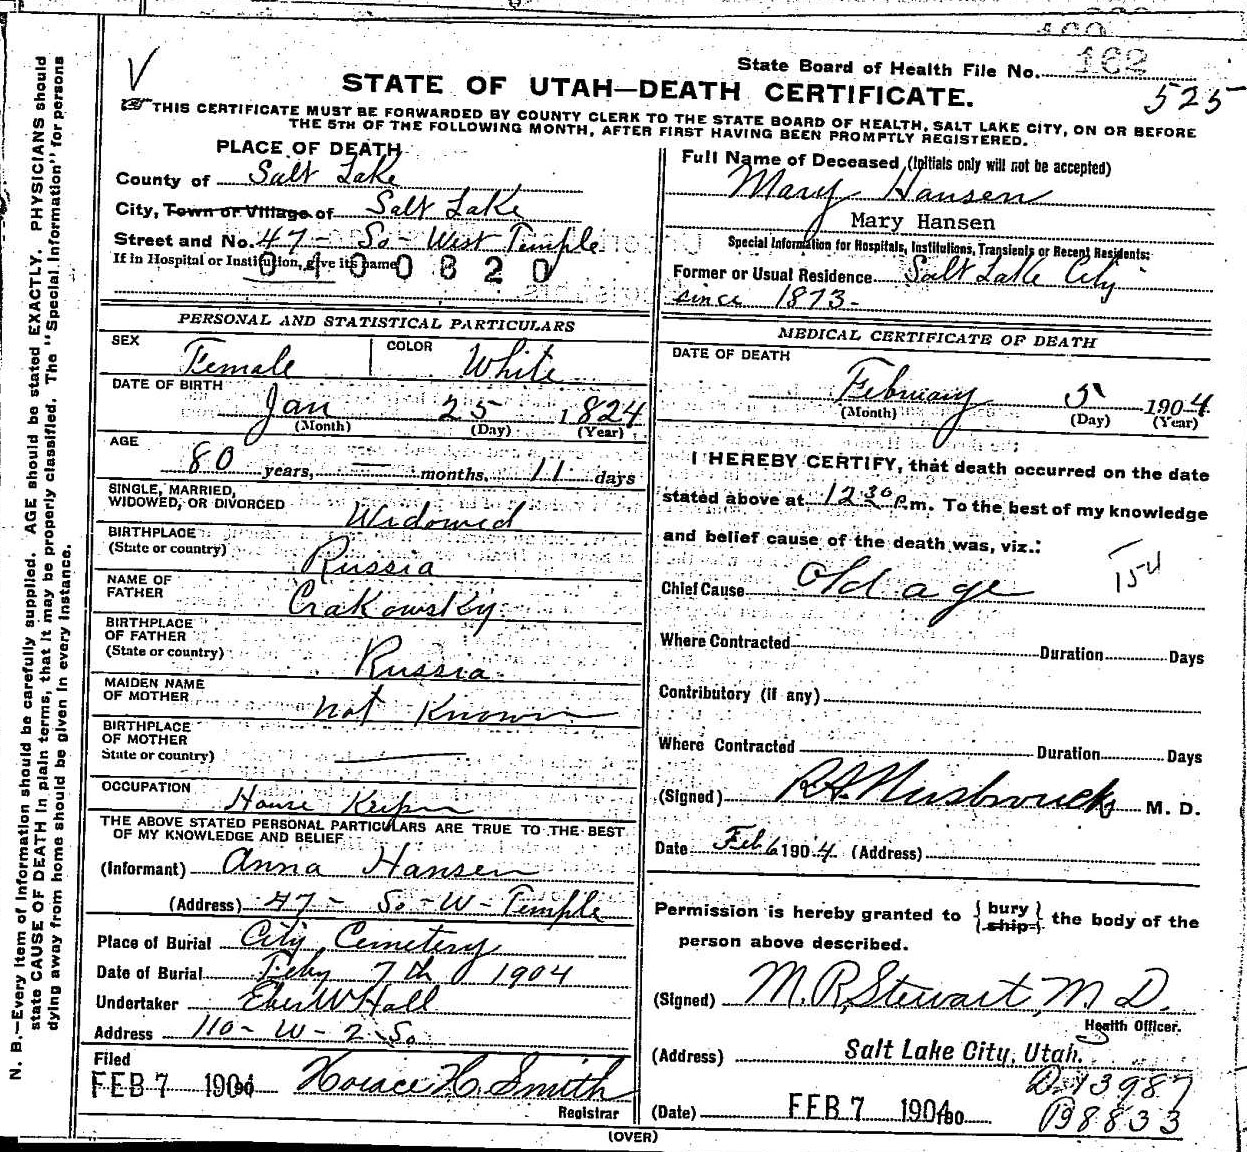 State Board of Health File No. 162
525
STATE OF UTAH—DEATH CERTIFICATE.
THIS CERTIFICATE MUST BE FORWARDED BY COUNTY CLERK TO THE STATE BOARD OF HEALTH, SALT LAKE CITY, ON OR BEFORE
THE 5TH OF THE FOLLOWING MONTH, AFTER FIRST HAVING BEEN PROMPTLY REGISTERED.
PLACE OF DEATH
County of Salt Lake
City, Town or Village of Salt Lake
Street and No. 47 - So - West Temple
If in Hospital or Institution, give its name
0400820
Full Name of Deceased (Initials only will not be accepted)
Mary Hansen
Mary Hansen
Special Information for Hospitals, Institutions, Transients or Recent Residents:
Former or Usual Residence Salt Lake City
since 1873-
PERSONAL AND STATISTICAL PARTICULARS
SEX Female COLOR White
DATE OF BIRTH
Jan 25 1824
(Month) (Day) (Year)
AGE
80 years, — months, 11 days
SINGLE, MARRIED,
WIDOWED, OR DIVORCED Widowed
BIRTHPLACE
(State or country) Russia
NAME OF
FATHER Crakowsky
BIRTHPLACE
OF FATHER
(State or country) Russia
MAIDEN NAME
OF MOTHER not Known
BIRTHPLACE
OF MOTHER
State or country) —
OCCUPATION
House Keeper
THE ABOVE STATED PERSONAL PARTICULARS ARE TRUE TO THE BEST
OF MY KNOWLEDGE AND BELIEF
(Informant) Anna Hansen
(Address) 47 - So - W - Temple
Place of Burial City Cemetery
Date of Burial Feby 7th 1904
Undertaker Eber W Hall
Address 110 - W - 2 So
Filed
FEB 7 1904 Horace H. Smith
Registrar
MEDICAL CERTIFICATE OF DEATH
DATE OF DEATH
February 5 1904
(Month) (Day) (Year)
I HEREBY CERTIFY, that death occurred on the date
stated above at 12 30 p.m. To the best of my knowledge
and belief cause of the death was, viz.:
154
Chief Cause Old age
Where Contracted Duration Days
Contributory (if any)
Where Contracted Duration Days
(Signed) M. D.
Date Feb 6 1904 (Address)
Permission is hereby granted to {bury ship} the body of the
person above described.
(Signed) M. R. Stewart, M. D.
Health Officer.
(Address) Salt Lake City, Utah.
D 13987
P98833
(Date) FEB 7 1904
(OVER)
N. B.—Every item of information should be carefully supplied. AGE should be stated EXACTLY. PHYSICIANS should
state CAUSE OF DEATH in plain terms, that it may be properly classified. The "Special Information" for persons
dying away from home should be given in every instance.